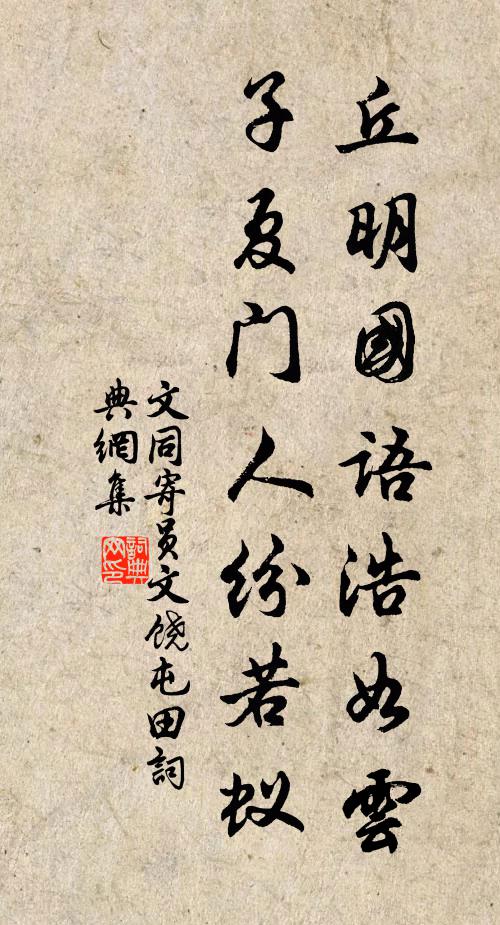 丘明國語浩如雲
子夏门人纷若蚁
文同寄员文饶屯田詞
典網集
詞典
网印